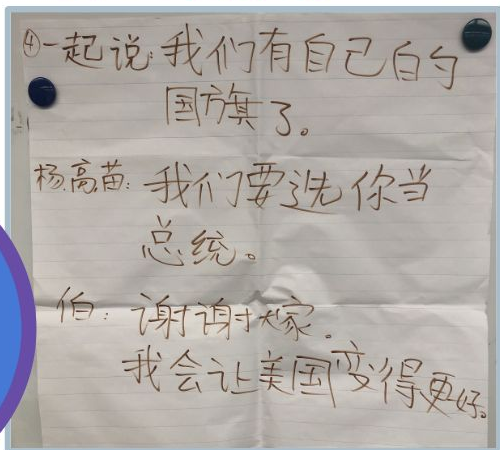 ④一起说:我们有自己的
国旗了。
杨高苗:我们要选你当
总统。
伯:谢谢大家.
我会让美国变得更好。